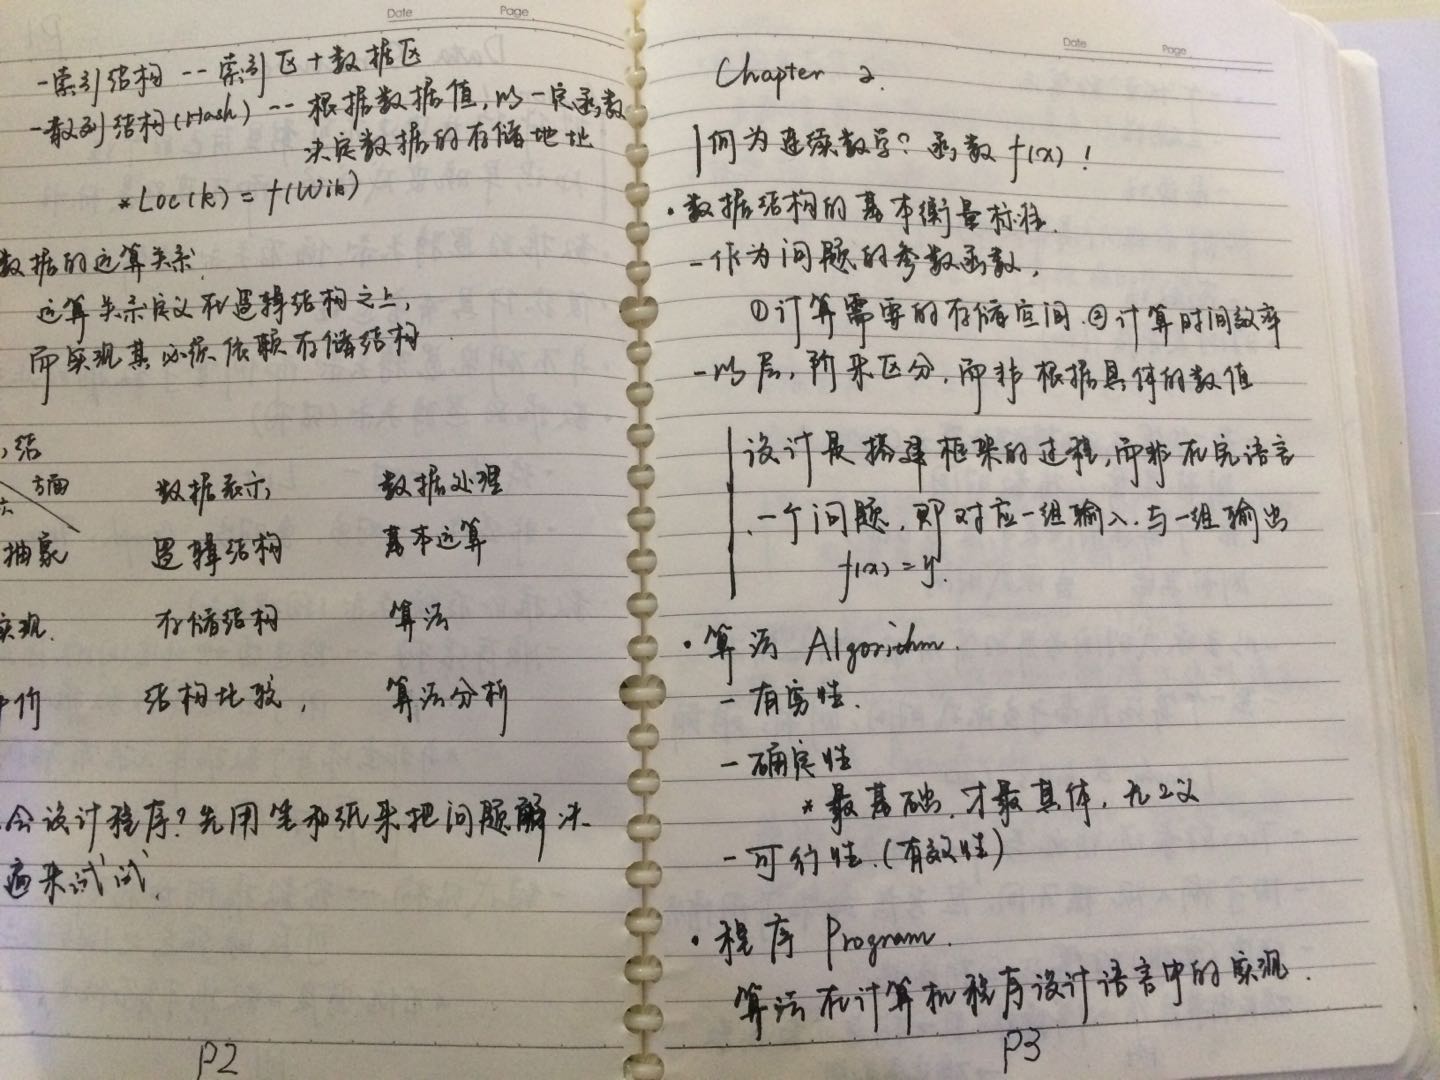 Date Page
-索引结构 -- 索引区+数据区
-散列结构(Hash) -- 根据数据值,以一定函数
决定数据的存储地址
*Loc(k) = f(Wik)
数据的运算关系
运算关系定义在逻辑结构之上,
而实现其必须依赖存储结构
结
方面 数据表示, 数据处理
抽象 逻辑结构 基本运算
实现. 存储结构 算法
价 结构比较, 算法分析
会设计程序?先用笔和纸来把问题解决
遍来试试.
P2
Date Page
Chapter 2.
何为连续数学?函数f(x)!
·数据结构的基本衡量标准.
-作为问题的参数函数,
①计算需要的存储空间.②计算时间效率
-以层,阶来区分,而非根据具体的数值
设计是搭建框架的过程,而非在完语言
一个问题,即对应一组输入.与一组输出
f(x) = y.
·算法 Algorithm.
-有穷性.
-确定性
*最基础,才最具体,无2义
-可行性.(有效性)
·程序 Program.
算法在计算机程序设计语言中的实现.
P3